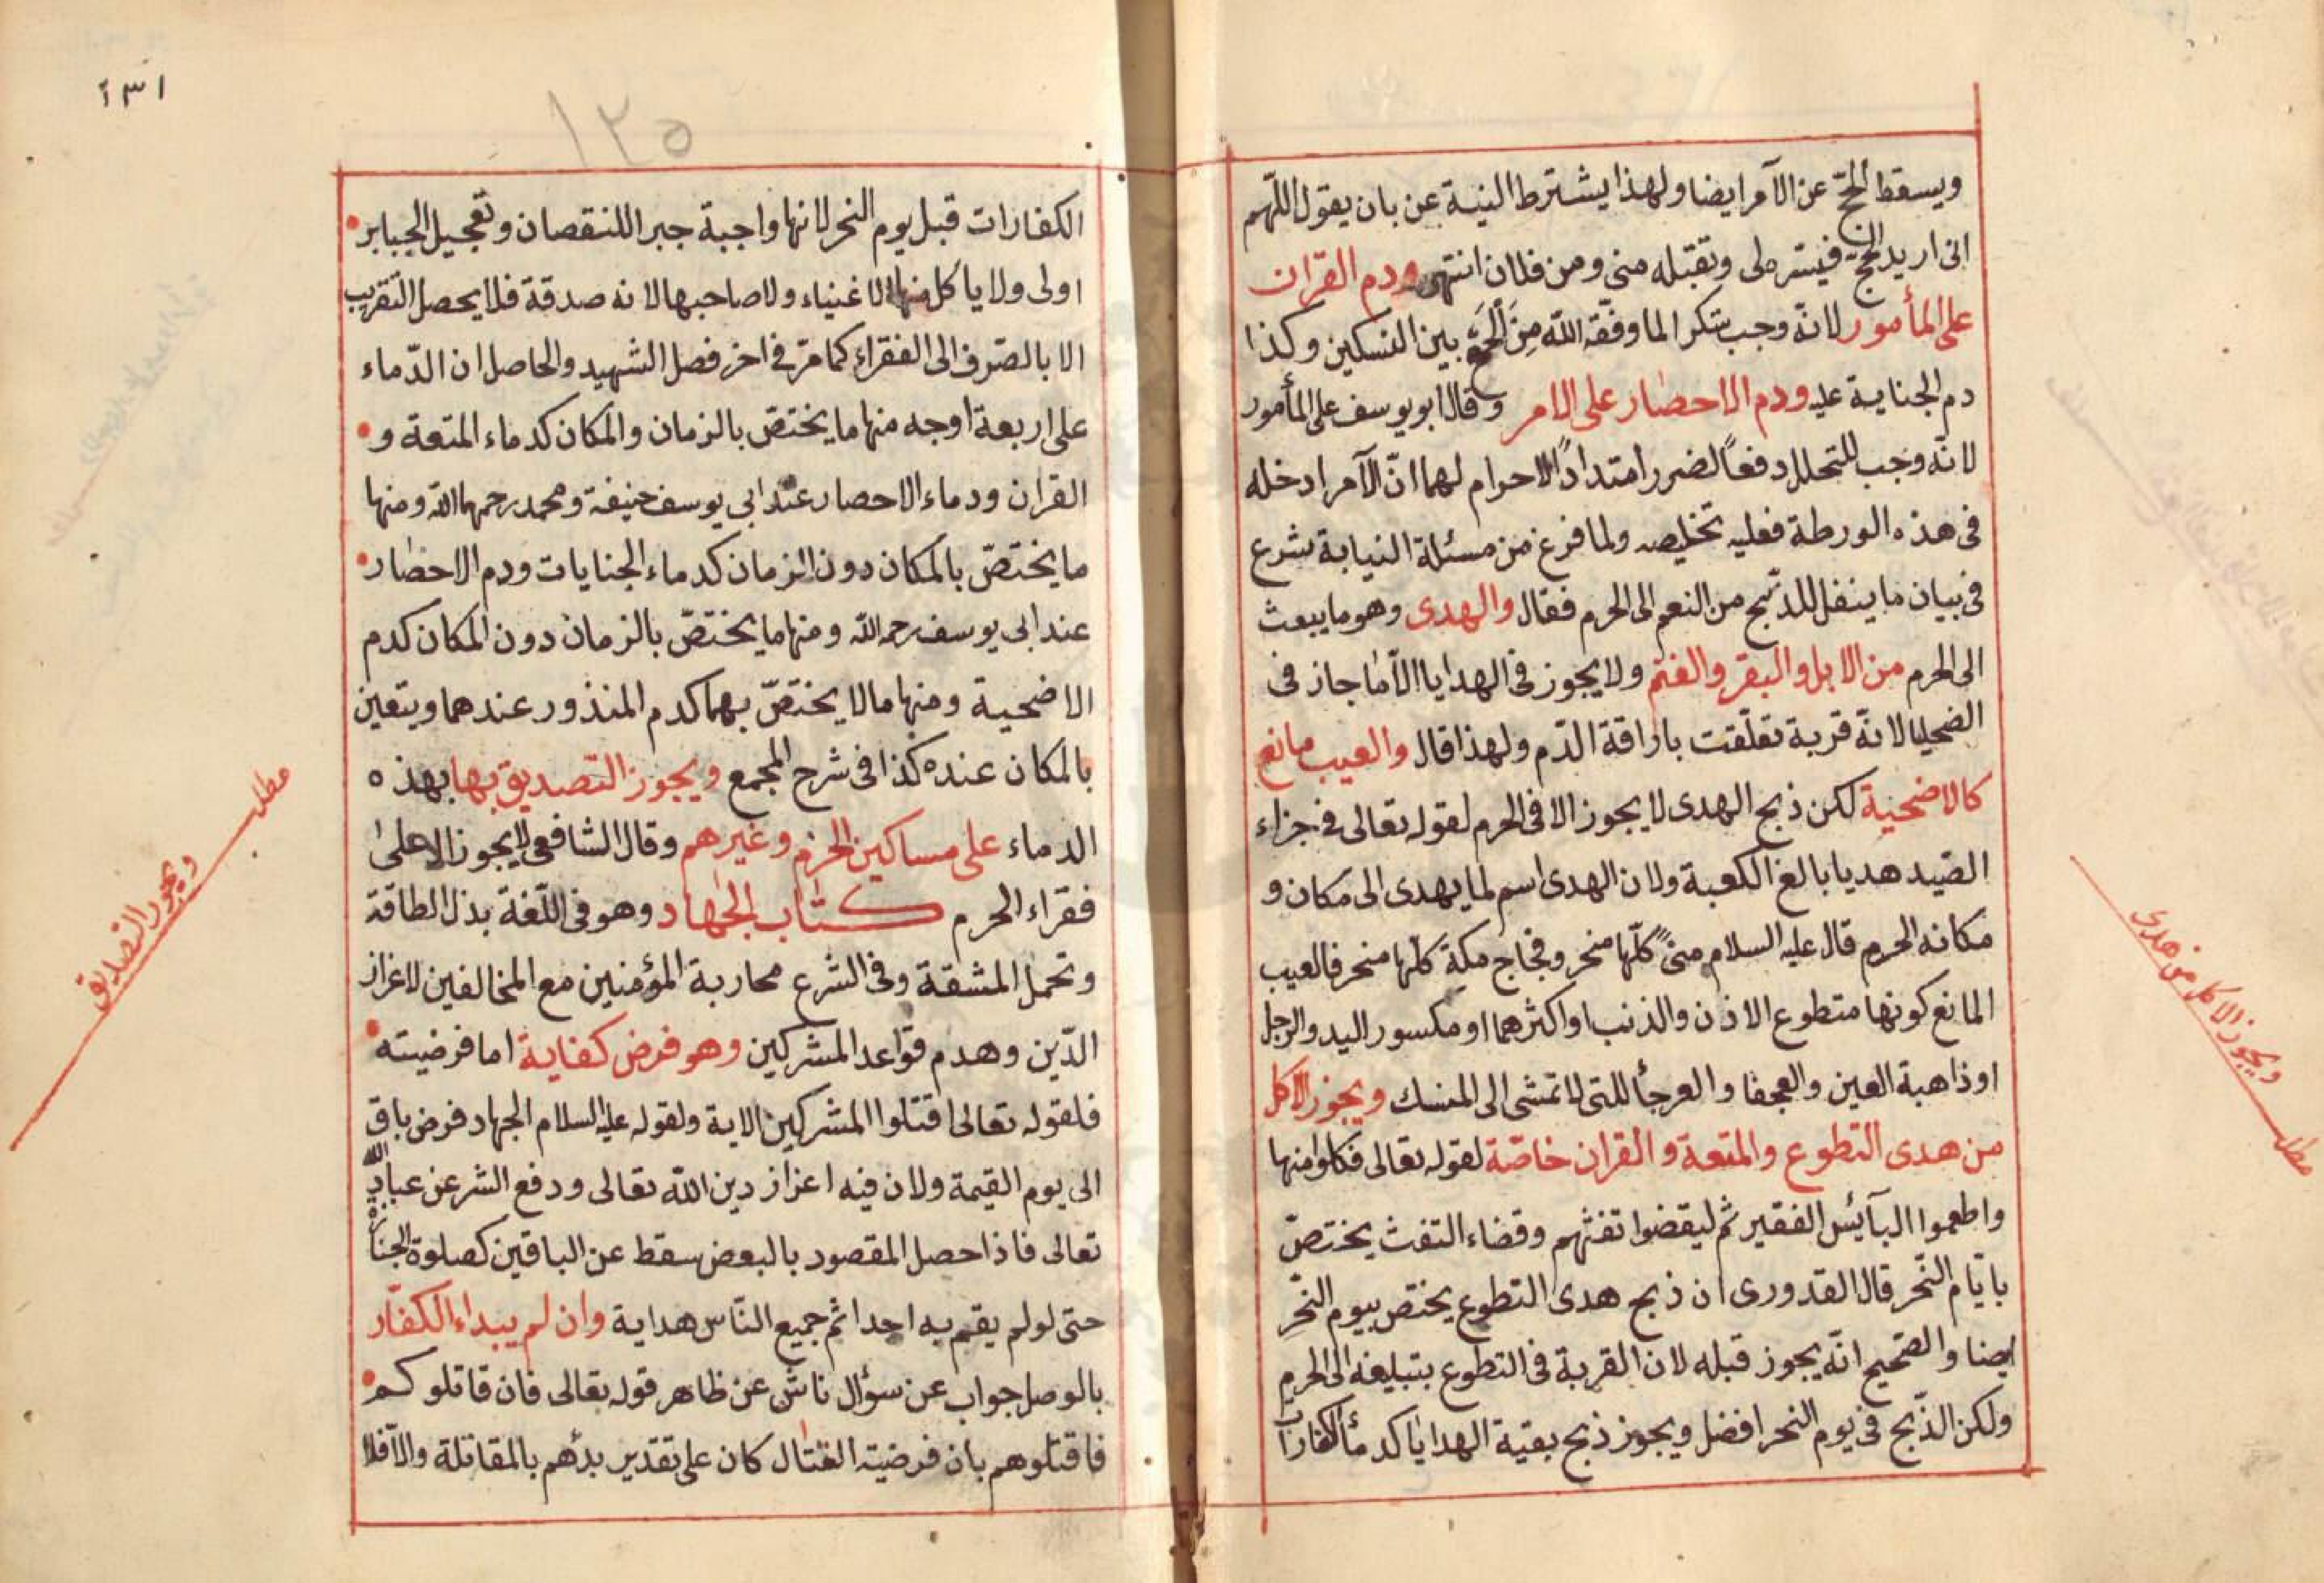 ويسقط الحج عن الآمر ايضا ولهذا يشترط النية عن بان يقول اللهم
انى اريد الحج فيسر لى وتقبله منى ومن فلان انتهى ودم القران
على المأمور لانه وجب شكرا لما وفقه الله من الجمع بين النسكين وكذا
دم الجناية عليه ودم الاحصار على الامر وقال ابو يوسف على المأمور
لانه وجب للتحلل دفعاً لضرر امتداد الاحرام لهما انّ الآمر ادخله
فى هذه الورطة فعليه تخليصه ولما فرغ من مسئلة النيابة شرع
فى بيان ما ينقل للذبح من النعم الى الحرم فقال والهدى وهو ما يبعث
الى الحرم من الابل والبقر والغنم ولا يجوز فى الهدايا الا ما جاز فى
الضحايا لانه قربة تعلّقت باراقة الدّم ولهذا قال والعيب مانع
كالاضحية لكن ذبح الهدى لا يجوز الا فى الحرم لقوله تعالى فى جزاء
الصّيد هديا بالغ الكعبة ولان الهدى اسم لما يهدى الى مكان و
مكانه الحرم قال عليه السلام منىً كلّها منحر وفجاج مكة كلّها منحر فالعيب
المانع كونها مقطوع الاذن والذنب او اكثرهما او مكسور اليد والرجل
او ذاهبة العين والعجفا والعرجأ للتى لا تمشى الى المنسك ويجوز الاكل
من هدى التطوع والمتعة والقران خاصّة لقوله تعالى فكلوا منها
واطعموا البآئس الفقير ثم ليقضوا تفثهم وقضاء التفث يختصّ
بايّام النّحر قال القدورى ان ذبح هدى التطوع يختص بيوم النّحر
ايضا والصّحيح انّه يجوز قبله لان القربة فى التطوع بتبليغه الى الحرم
ولكن الذّبح فى يوم النحر افضل ويجوز ذبح بقية الهدايا كدمأ الكفارات
مطلب
ويجوز الاكل من هدى
١٣١
١٢٥
الكفارات قبل يوم النحر لانها واجبة جبرا للنقصان وتعجيل الجبابر
اولى ولا ياكل منها الاغنياء ولا صاحبها لانه صدقة فلا يحصل التقريب
الا بالصّرف الى الفقراء كما مرّ فى اخر فصل الشهيد والحاصل ان الدّماء
على اربعة اوجه منها ما يختصّ بالزمان والمكان كدماء المتعة و
القران ودماء الاحصار عند ابى يوسف حنيفة ومحمد رحمهما الله ومنها
ما يختصّ بالمكان دون الزمان كدماء الجنايات ودم الاحصار
عند ابى يوسف رحمه الله ومنها ما يختصّ بالزمان دون المكان كدم
الاضحية ومنها ما لا يختصّ بهما كدم المنذور عندهما ويتعين
بالمكان عنده كذا فى شرح المجمع ويجوز التصديق بها بهذه
الدماء على مساكين الحرم وغيرهم وقال الشافعى لا يجوز الا على
فقراء الحرم كتاب الجهاد وهو فى اللّغة بذل الطاقة
وتحمل المشقة وفى الشرع محاربة المؤمنين مع المخالفين لاعزاز
الدّين وهدم قواعد المشركين وهو فرض كفاية اما فرضيته
فلقوله تعالى اقتلوا المشركين الاية ولقوله عليه السلام الجهاد فرض باق
الى يوم القيمة ولان فيه اعزاز دين الله تعالى ودفع الشر عن عباد الله
تعالى فاذا حصل المقصود بالبعض سقط عن الباقين كصلوة الجنازة
حتى لو لم يقم به احد اثم جميع النّاس هداية وان لم يبداء الكفّار
بالوصل جواب عن سؤال ناش عن ظاهر قوله تعالى فان قاتلوكم
فاقتلوهم بان فرضية القتال كان على تقدير بدأهم بالمقاتلة والاّ فلا
مطلب
ويجوز التصديق